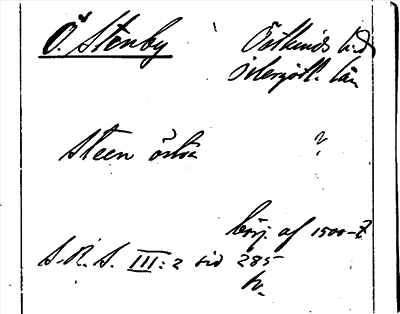 Ö. Stenby Östkinds h.d
Östergötl. län
Steen östra ?
börj. af 1500-t.
S.R.S. III: 2 sid 285